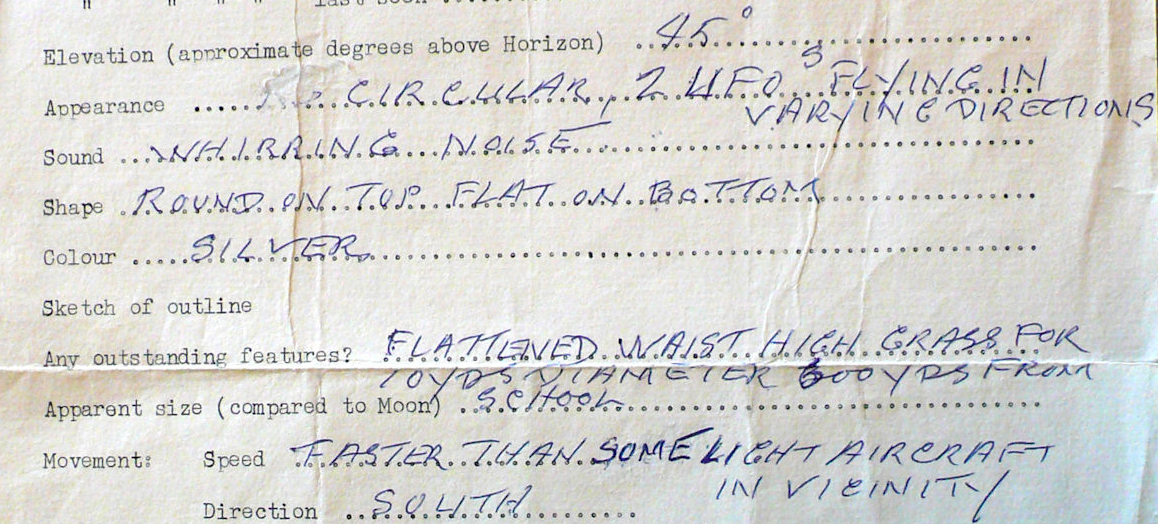 "          "     "   "   last seen ..........
Elevation (approximate degrees above Horizon) ..45°..............................
Appearance ........ CIRCULAR, 2 UFOS FLYING IN
VARYING DIRECTIONS
Sound ...WHIRRING NOISE..............................
Shape .ROUND ON TOP FLAT ON BOTTOM....................
Colour .....SILVER..............................
Sketch of outline
Any outstanding features? FLATTENED WAIST HIGH GRASS FOR
10YDS DIAMETER 600YDS FROM
Apparent size (compared to Moon) ..SCHOOL..............................
Movement: Speed FASTER THAN SOME LIGHT AIRCRAFT
IN VICINITY
Direction ..SOUTH............